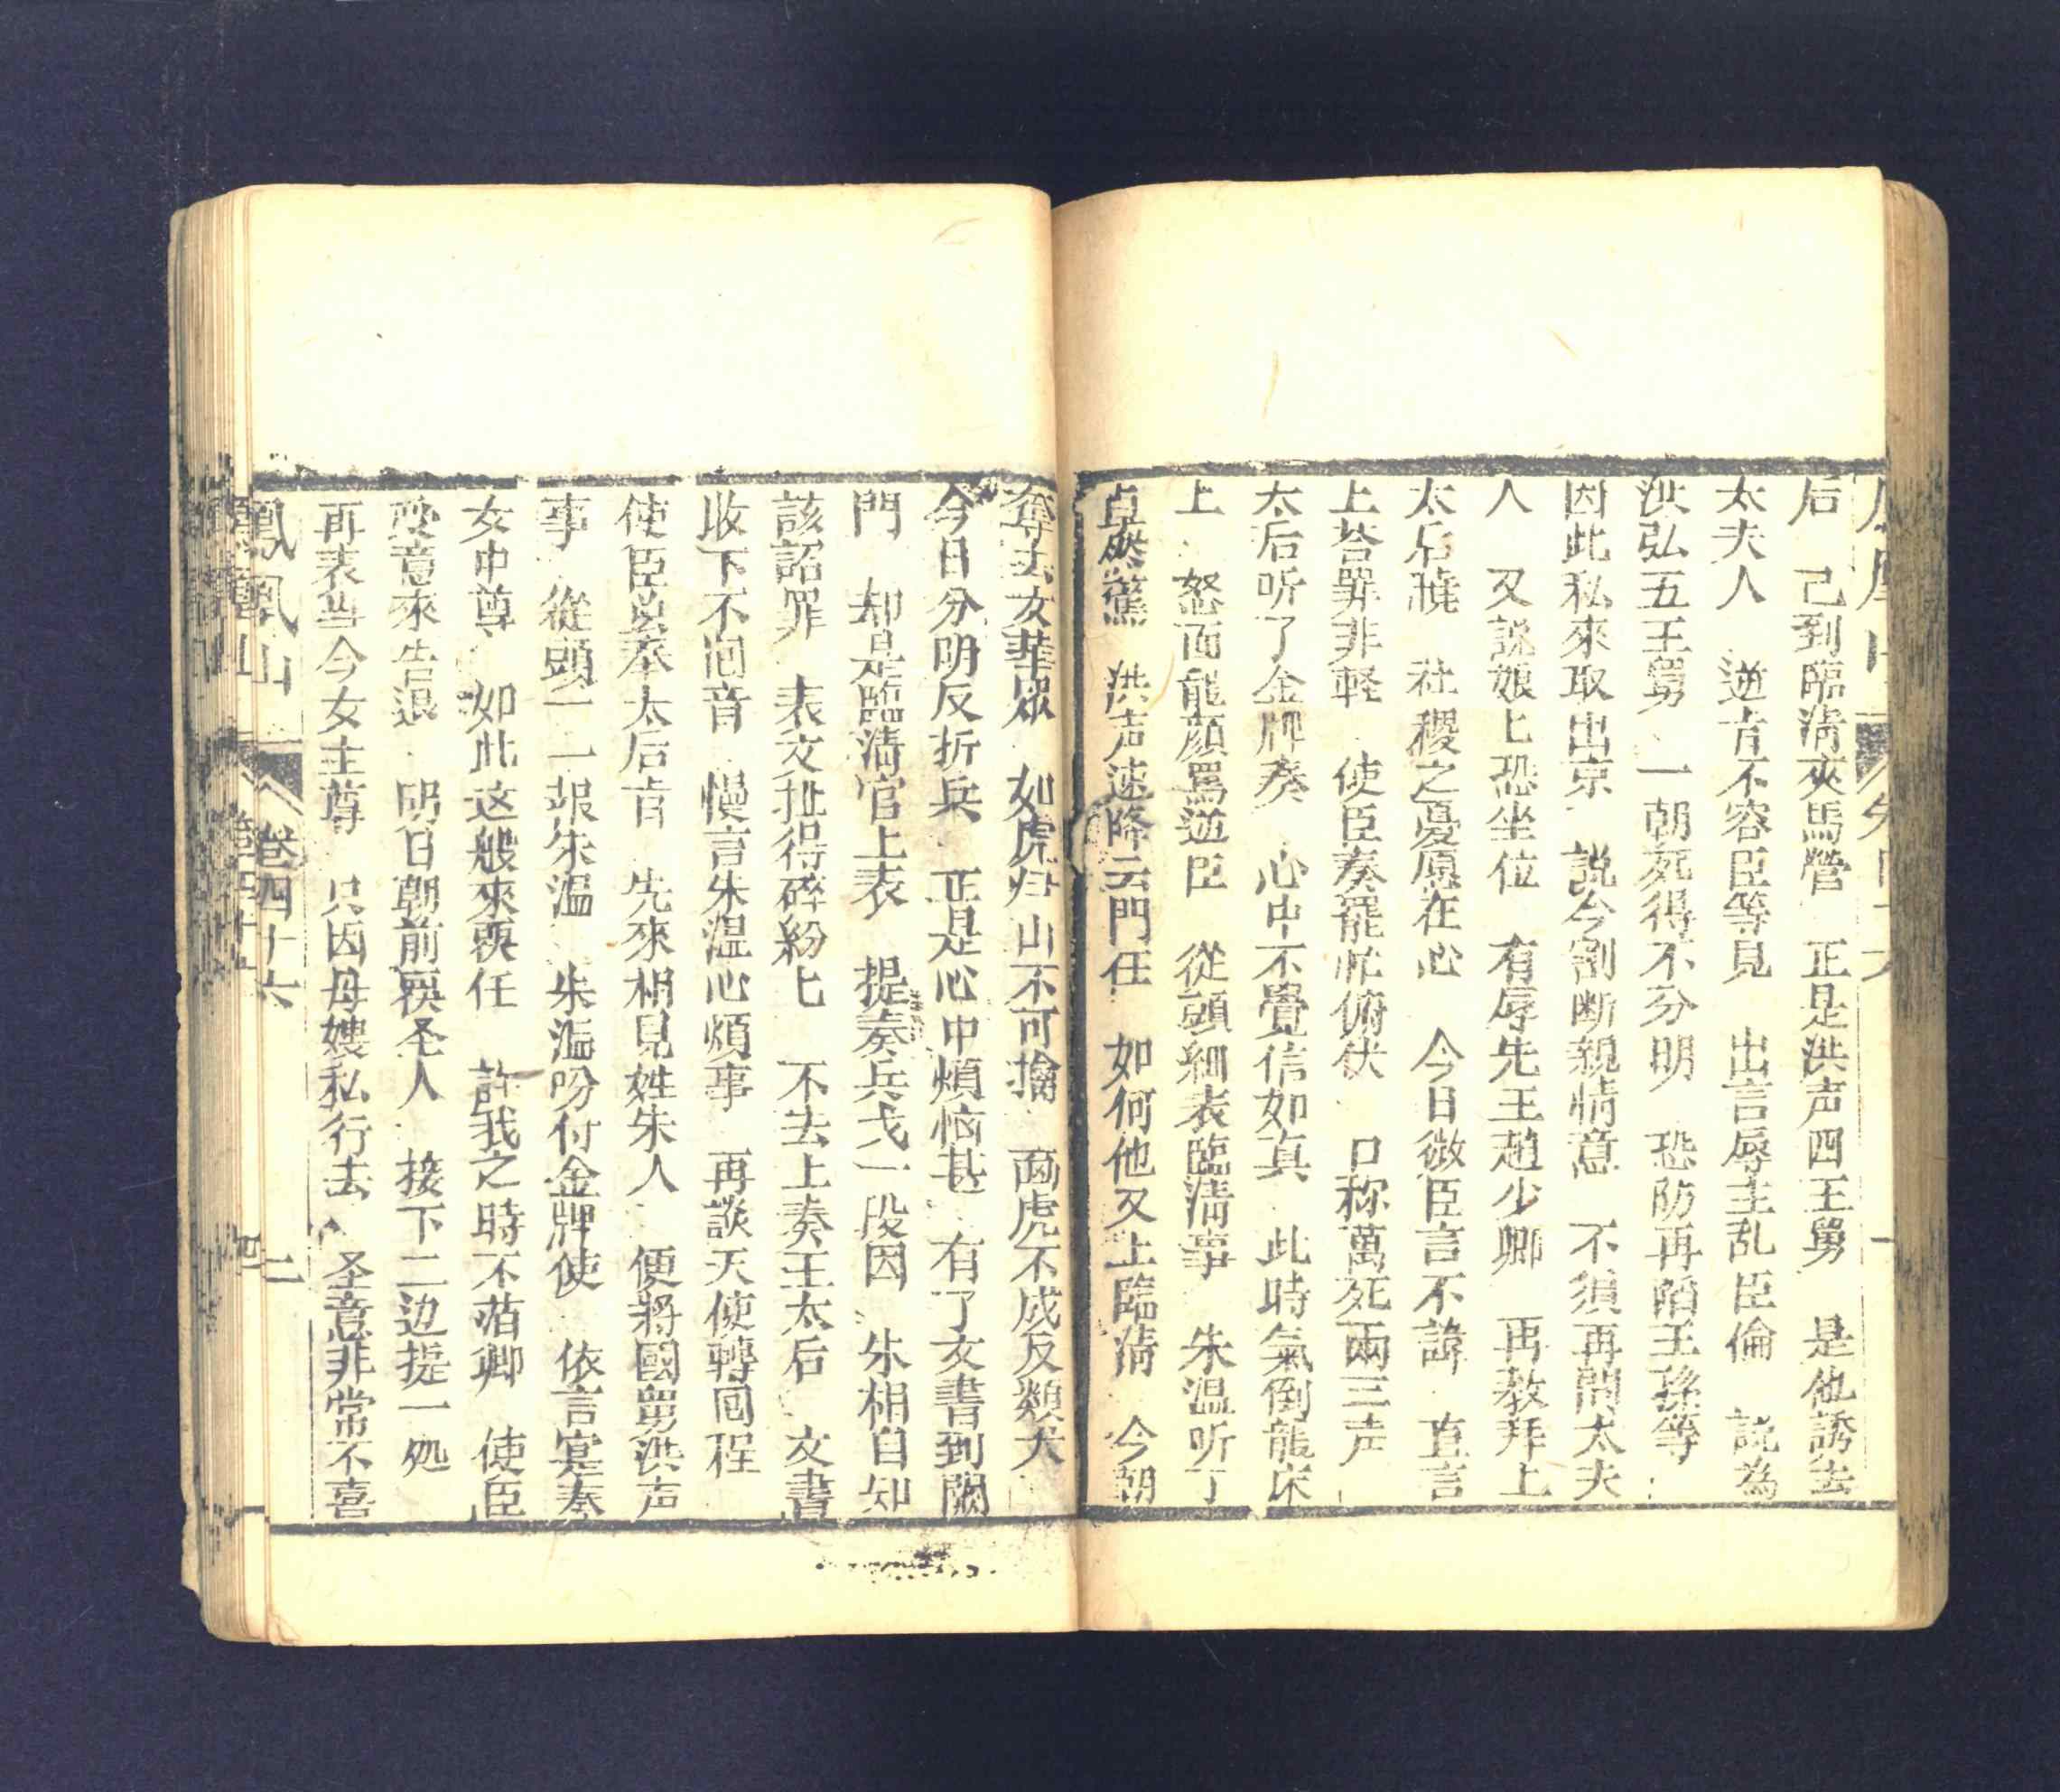 后 己到臨清夾馬營 正是洪声四王舅 是他誘去
太夫人 逆肯不容臣等見 出言辱主乱臣倫 説為
洪弘五王舅 一朝死得不分明 恐防再陷王孫等
因此私來取出京 説今割断親情意 不須再問太夫
人 又説娘匕恐坐位 有辱先王趙少卿 再教拜上
太后 社稷之憂愿在心 今日微臣言不諱 直言
上荅罪非軽 使臣奏罷忙俯伏 口称萬死兩三声
太后听了金牌奏 心中不覺信如真 此時氣倒龍床
上 怒面龍顔罵逆臣 從頭細表臨清事 朱温听了
驚 洪声速降云門任 如何他又上臨清 今朝
奪去女華眾 如虎归山不可擒 畵虎不成反類犬
今日分明反折兵 正是心中煩恼甚 有了文書到闕
門 却是臨清官上表 提奏兵戈一段因 朱相自知
該詔罪 表文扯得碎紛匕 不去上奏王太后 文書
收下不囘音 慢言朱温心煩事 再談天使轉囘程
使臣奉太后肯 先來相見姓朱人 便將國舅洪声
事 從頭一一報朱温 朱温吩付金牌使 依言寔奏
女中尊 如此这般來要任 許我之時不落卿 使臣
受意來告退 明日朝前候圣人 接下二边提一处
再表当今女主尊 只因母嫂私行去 圣意非常不喜
鳳凰山 卷四十六 二